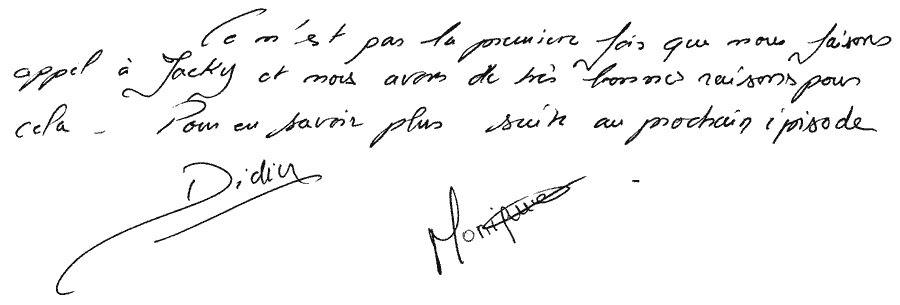 Ce n'est pas la premiere fois que nous faisons
appel à Jacky et nous avons de très bonnes raisons pour
cela - Pour en savoir plus suite au prochain episode
Didier
Monique